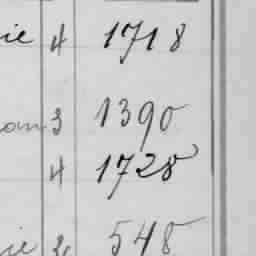 ie 4 1718
3 1390
4 1728
548